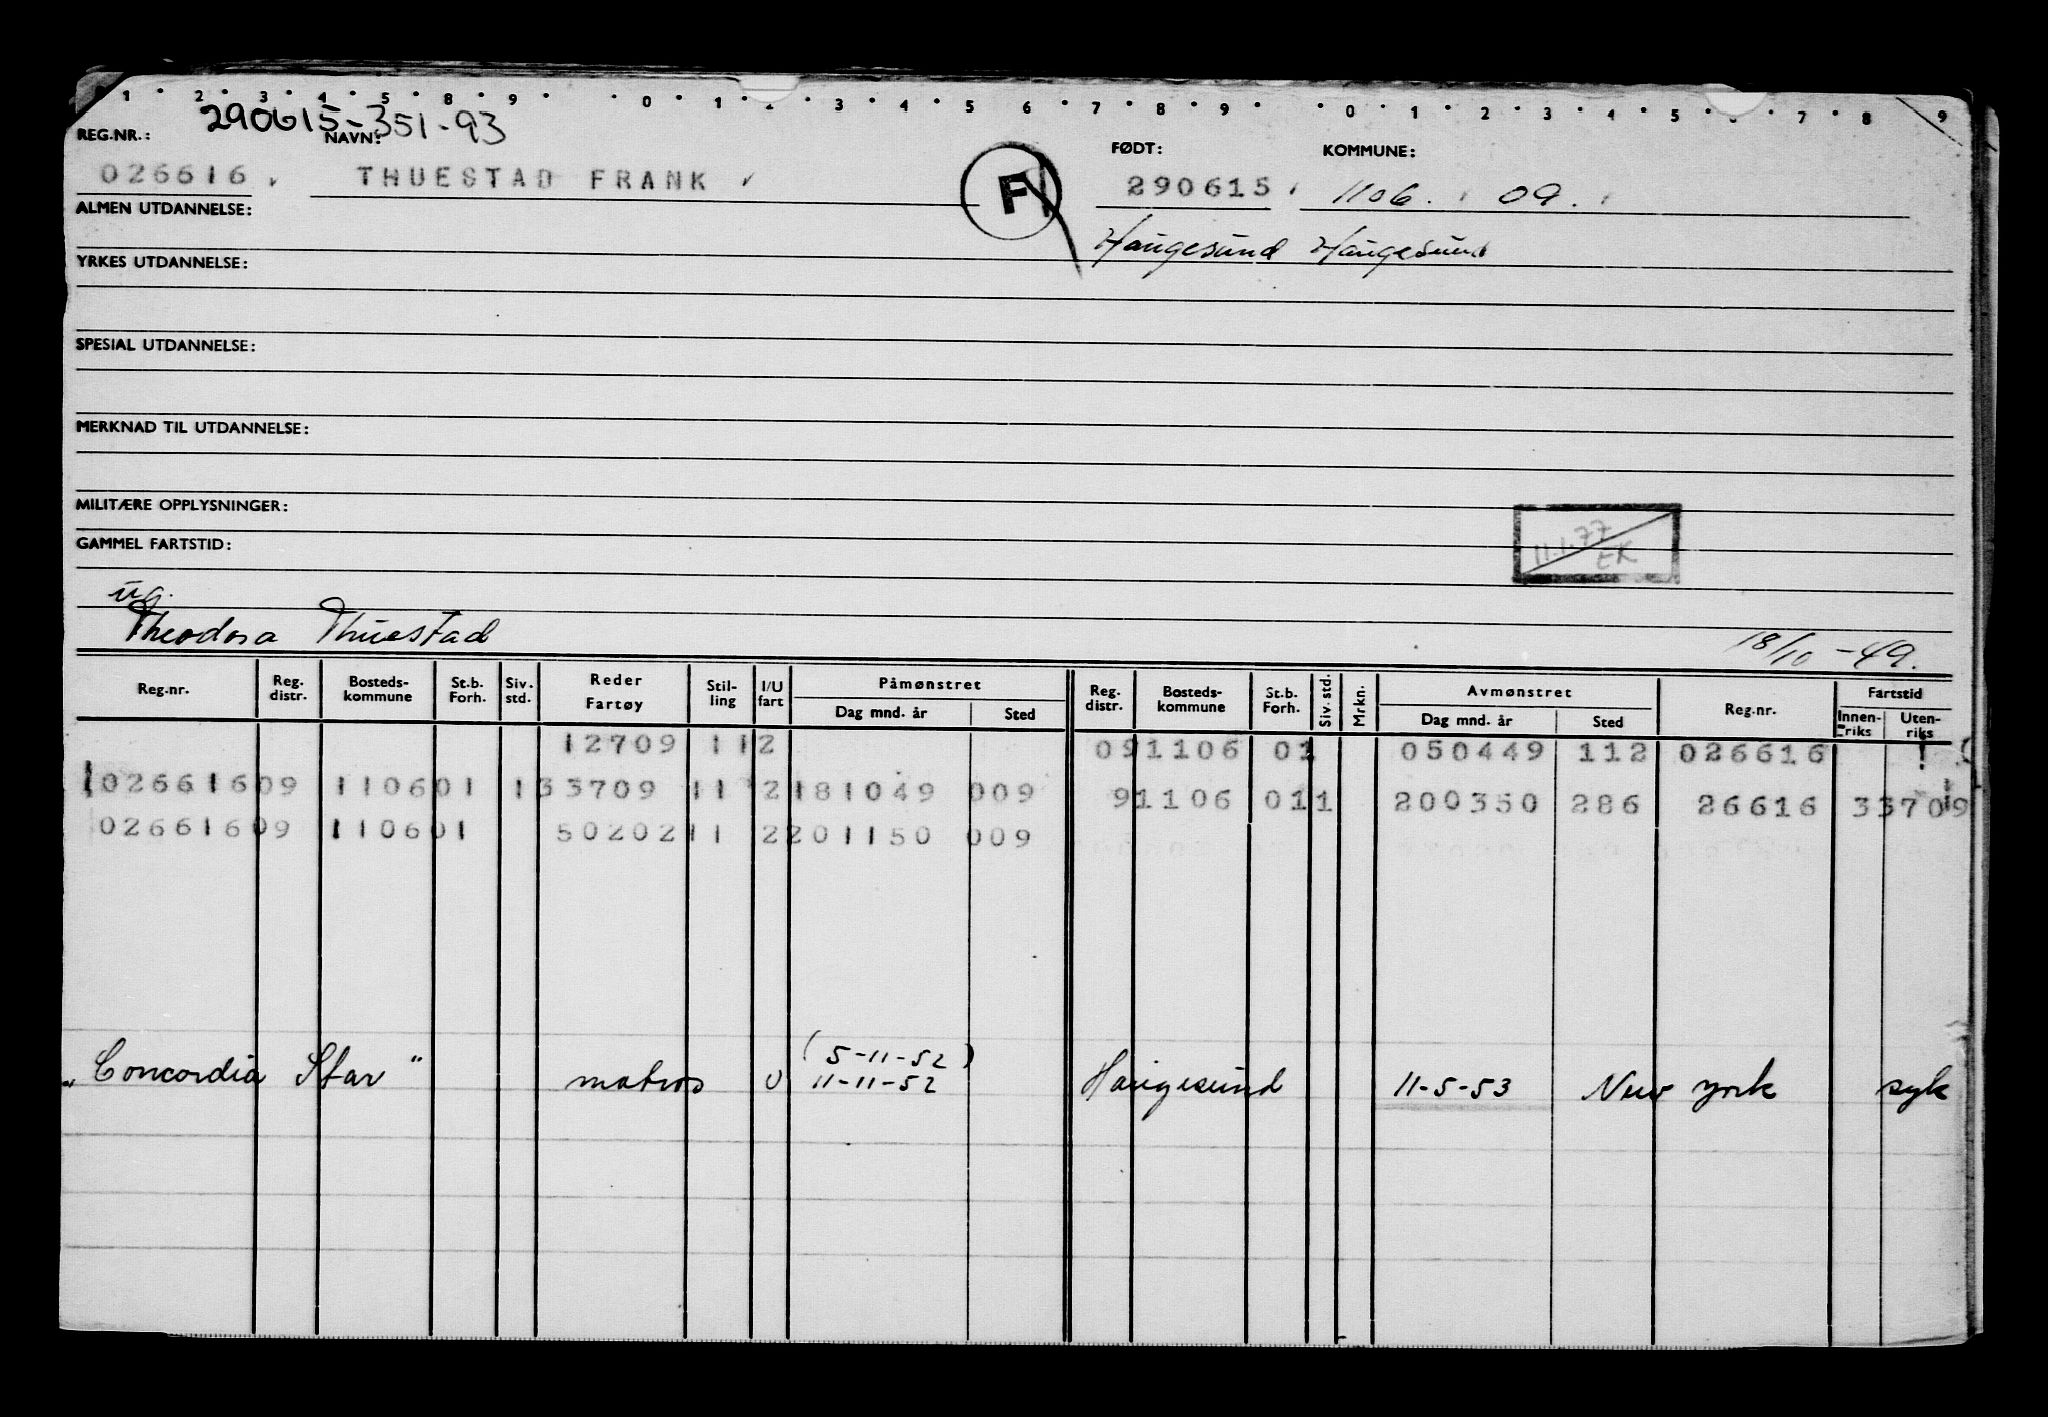 1 2 3 4 5 8 9 0 1 2 3 4 5 6 7 8 9 0 1 2 3 4 5 7 8 9
290615-351-93
REG.NR.: NAVN: FØDT: KOMMUNE:
026616 THUESTAD FRANK F 290615 1106. 09.
ALMEN UTDANNELSE:
Haugesund Haugesund
YRKES UTDANNELSE:
SPESIAL UTDANNELSE:
MERKNAD TIL UTDANNELSE:
MILITÆRE OPPLYSNINGER:
11.1.77
EK
GAMMEL FARTSTID:
ug.
Theodora Thuestad 18/10-49.
Reg.nr. Reg. distr. Bosteds-kommune St.b. Forh. Siv. std. Reder Fartøy Stil-ling I/U fart Påmønstret Dag mnd. år Sted Reg. distr. Bosteds-kommune St.b. Forh. Siv. std. Mrkn. Avmønstret Dag mnd. år Sted Reg.nr. Fartstid Innen-riks Uten-riks
12709 112 091106 01 050449 112 026616
02661609 110601 133709 11 2181049 009 91106 011 200350 286 26616 33709
02661609 110601 5020211 2201150 009
(5-11-52)
"Concordia Star" matros U 11-11-52 Haugesund 11-5-53 New York syk